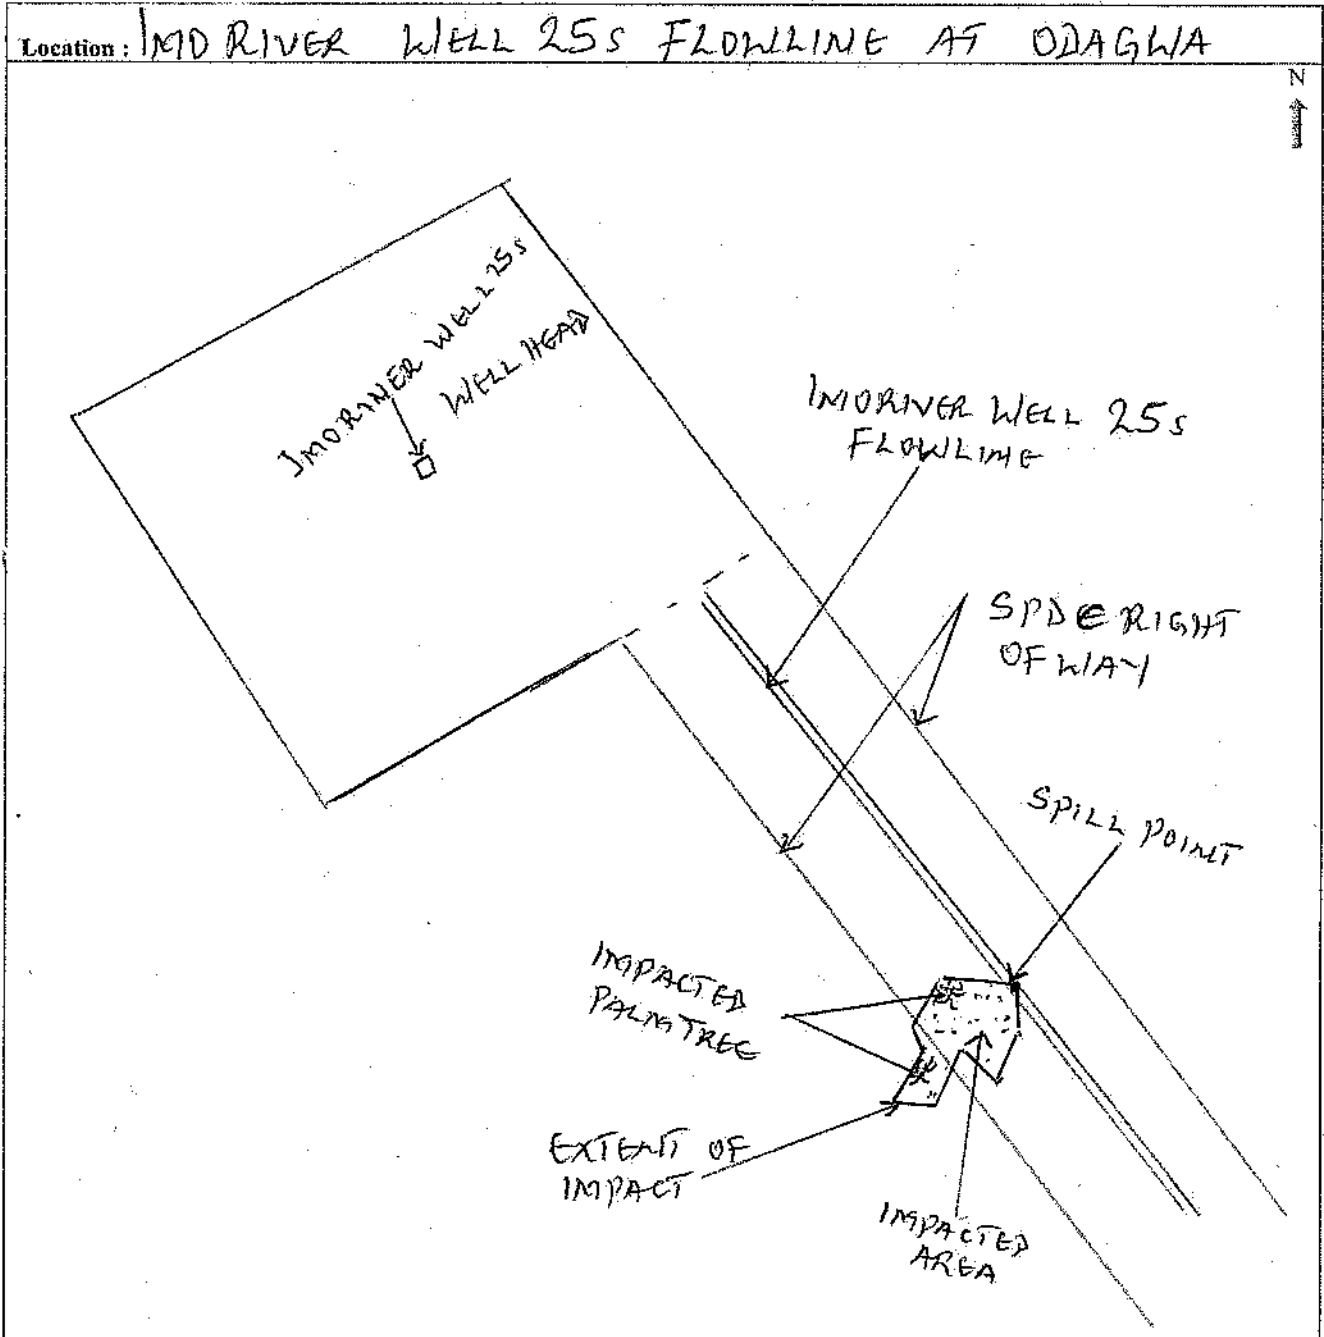 Location : IMO RIVER WELL 25s FLOWLINE AT ODAGWA
N
IMORIVER WELL 25s
WELL HEAD
IMORIVER WELL 25s
FLOWLINE
SPDC RIGHT
OF WAY
SPILL POINT
IMPACTED
PALM TREE
EXTENT OF
IMPACT
IMPACTED
AREA